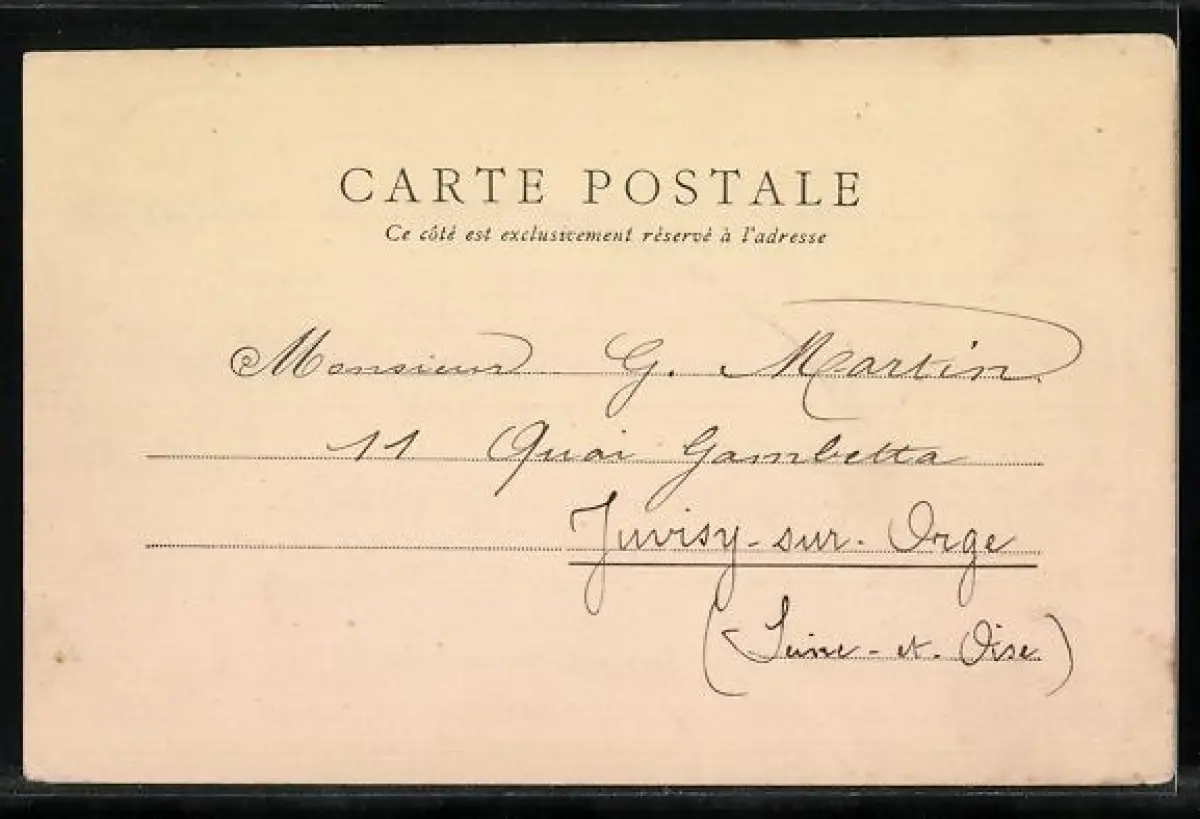 CARTE POSTALE
Ce côté est exclusivement réservé à l'adresse
Monsieur G. Martin
11 Quai Gambetta
Juvisy-sur-Orge
(Seine-et-Oise)